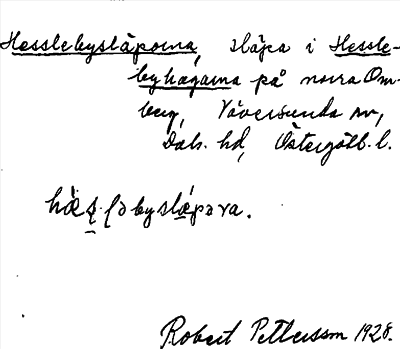 Hesslebysläporna, släpa i Hessle-
byhagarna på norra Om-
berg, Väversunda sn,
Dals hd, Östergötl. l.
Robert Pettersson 1928.